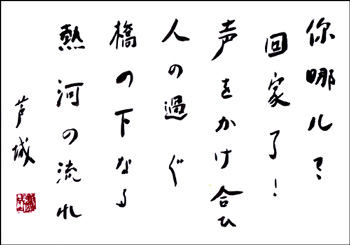 你哪ル？
回家了！
声をかけ合ひ
人の過ぐ
橋の下なる
熱河の流れ
芦城